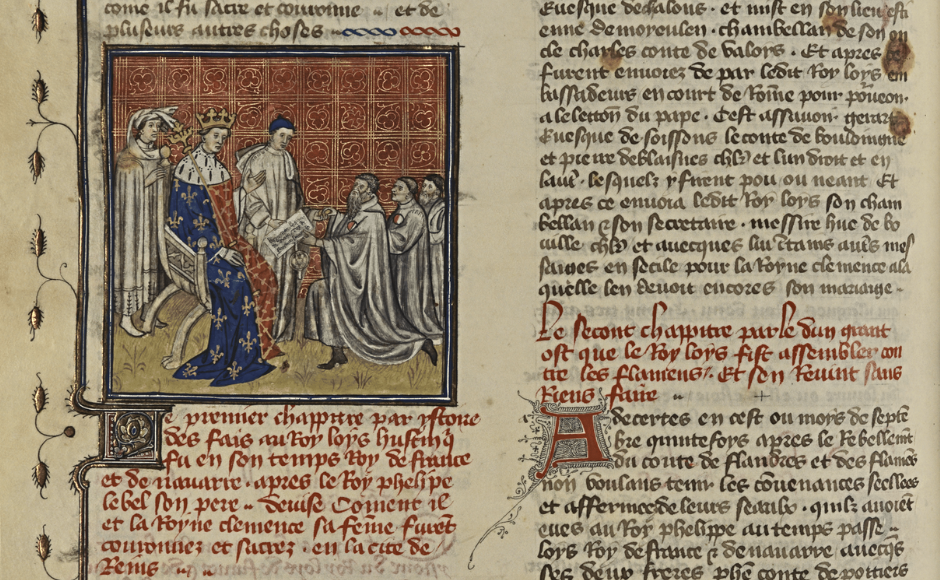 come il fu sacre et couronne et de
pluseurs autres choses
Le premier chappitre par ystoire
des fais au Roy loys hustin q
fu en son temps Roy de france
et de nauarre . apres le Roy phelipe
lebel son pere . deuise Coment il
et la Royne clemence sa feme furet
couronnez et sacrez . en la cite de
Reins
Euesque dechalons . et mist en son lieu esti
enne demorculen . chambellan de son on
cle charles conte de Valois . Et apres
furent enuoiez de par ledit Roy loys em
bassadeurs en court de Rome pour
a le letton du pape . Cest assauoir . gerart
Euesque de soissons le conte de bouloingne
et pierre deblaisnes chlr et lun droit et en
lautre . lesquelz y firent pou ou neant Et
apres ce enuoia ledit Roy loys son cham
bellan & son secretaire . messire hue de bo
uille chlr et auecques lui
saiges en secile pour la Royne clemence a la
quelle len deuoit encores son mariage
Le second chappitre parle dun grant
ost que le Roy loys fist assembler con
tre les flamens . Et sen Reuint sans
Riens faire
Adecertes en cest ou moys de septe
bre quinte foys apres le Rebellemt
du conte de flandres et des flamens
non voulans tenir les couenances seellees
et affermees de leurs seaulx . quilz auoient
eues au Roy phelippe au temps passe
loys Roy de france & de nauarre . auecqs
ses deux freres phe conte de poitiers